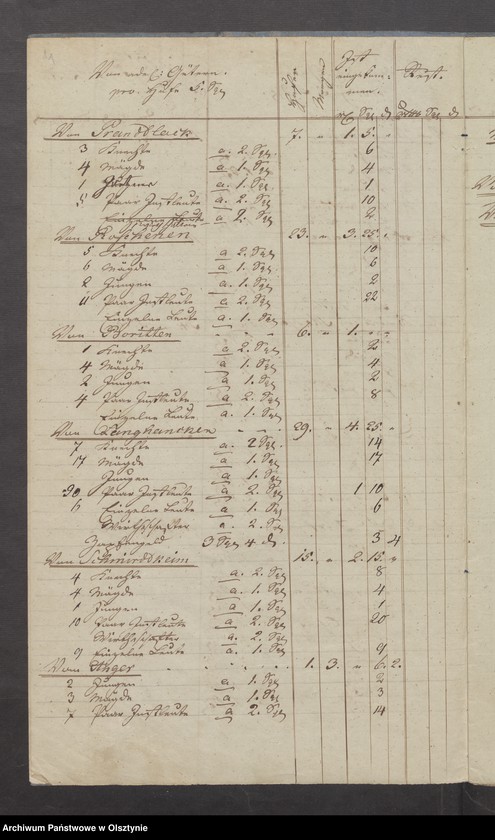 Von adel. Gütern.
pro Hufe 5. Sgr
Hufen
Morgen
Ist eingekommen.
rt Sgr d
Rest.
rt Sgr d
Von Prandtlack 7. " 1. 5. "
3 Knechte a. 2. Sgr 6
4 Mägde a 1. Sgr 4
1 a. 1. Sgr 1
5 Paar Instleute a. 2. Sgr 10
a 2. Sgr 2
Von Roschenen 23. " 3. 25. "
5 Knechte a 2. Sgr 10
6 Mägde a 1. Sgr 6
2 Jungen a. 1. Sgr 2
11 Paar Instleute a 2. Sgr 22
Einzelne Leute a. 1. Sgr
Von Boritten 6. " 1. " "
1 Knechte a 2. Sgr 2
4 Mägde a 1. Sgr 4
2 Jungen a 1. Sgr 2
4 Paar Instleute a 2. Sgr 8
Einzelne Leute a. 1. Sgr
Von Langhancken 29. " 4. 25. "
7 Knechte a. 2 Sgr 14
17 Mägde a 1. Sgr 17
Jungen a 1. Sgr
20 Paar Instleute a 2. Sgr 1 10
6 Einzelne Leute a 1. Sgr 6
Wirthschafter a. 2. Sgr
3 Sgr 4 d. 3 4
Von Schmirdtkeim 15. " 2. 15. "
4 Knechte a. 2. Sgr 8
4 Mägde a. 1. Sgr 4
1 Jungen a 1. Sgr 1
10 Paar Instleute a 2. Sgr 20
Wirthschafter a. 2. Sgr
9 Einzelne Leute a 1. Sgr 9
Vom Anger 1. 3. " 6. 2.
2 Jungen a 1. Sgr 2
3 Mägde a 1. Sgr 3
7 Paar Instleute a 2. Sgr 14
Archiwum Państwowe w Olsztynie